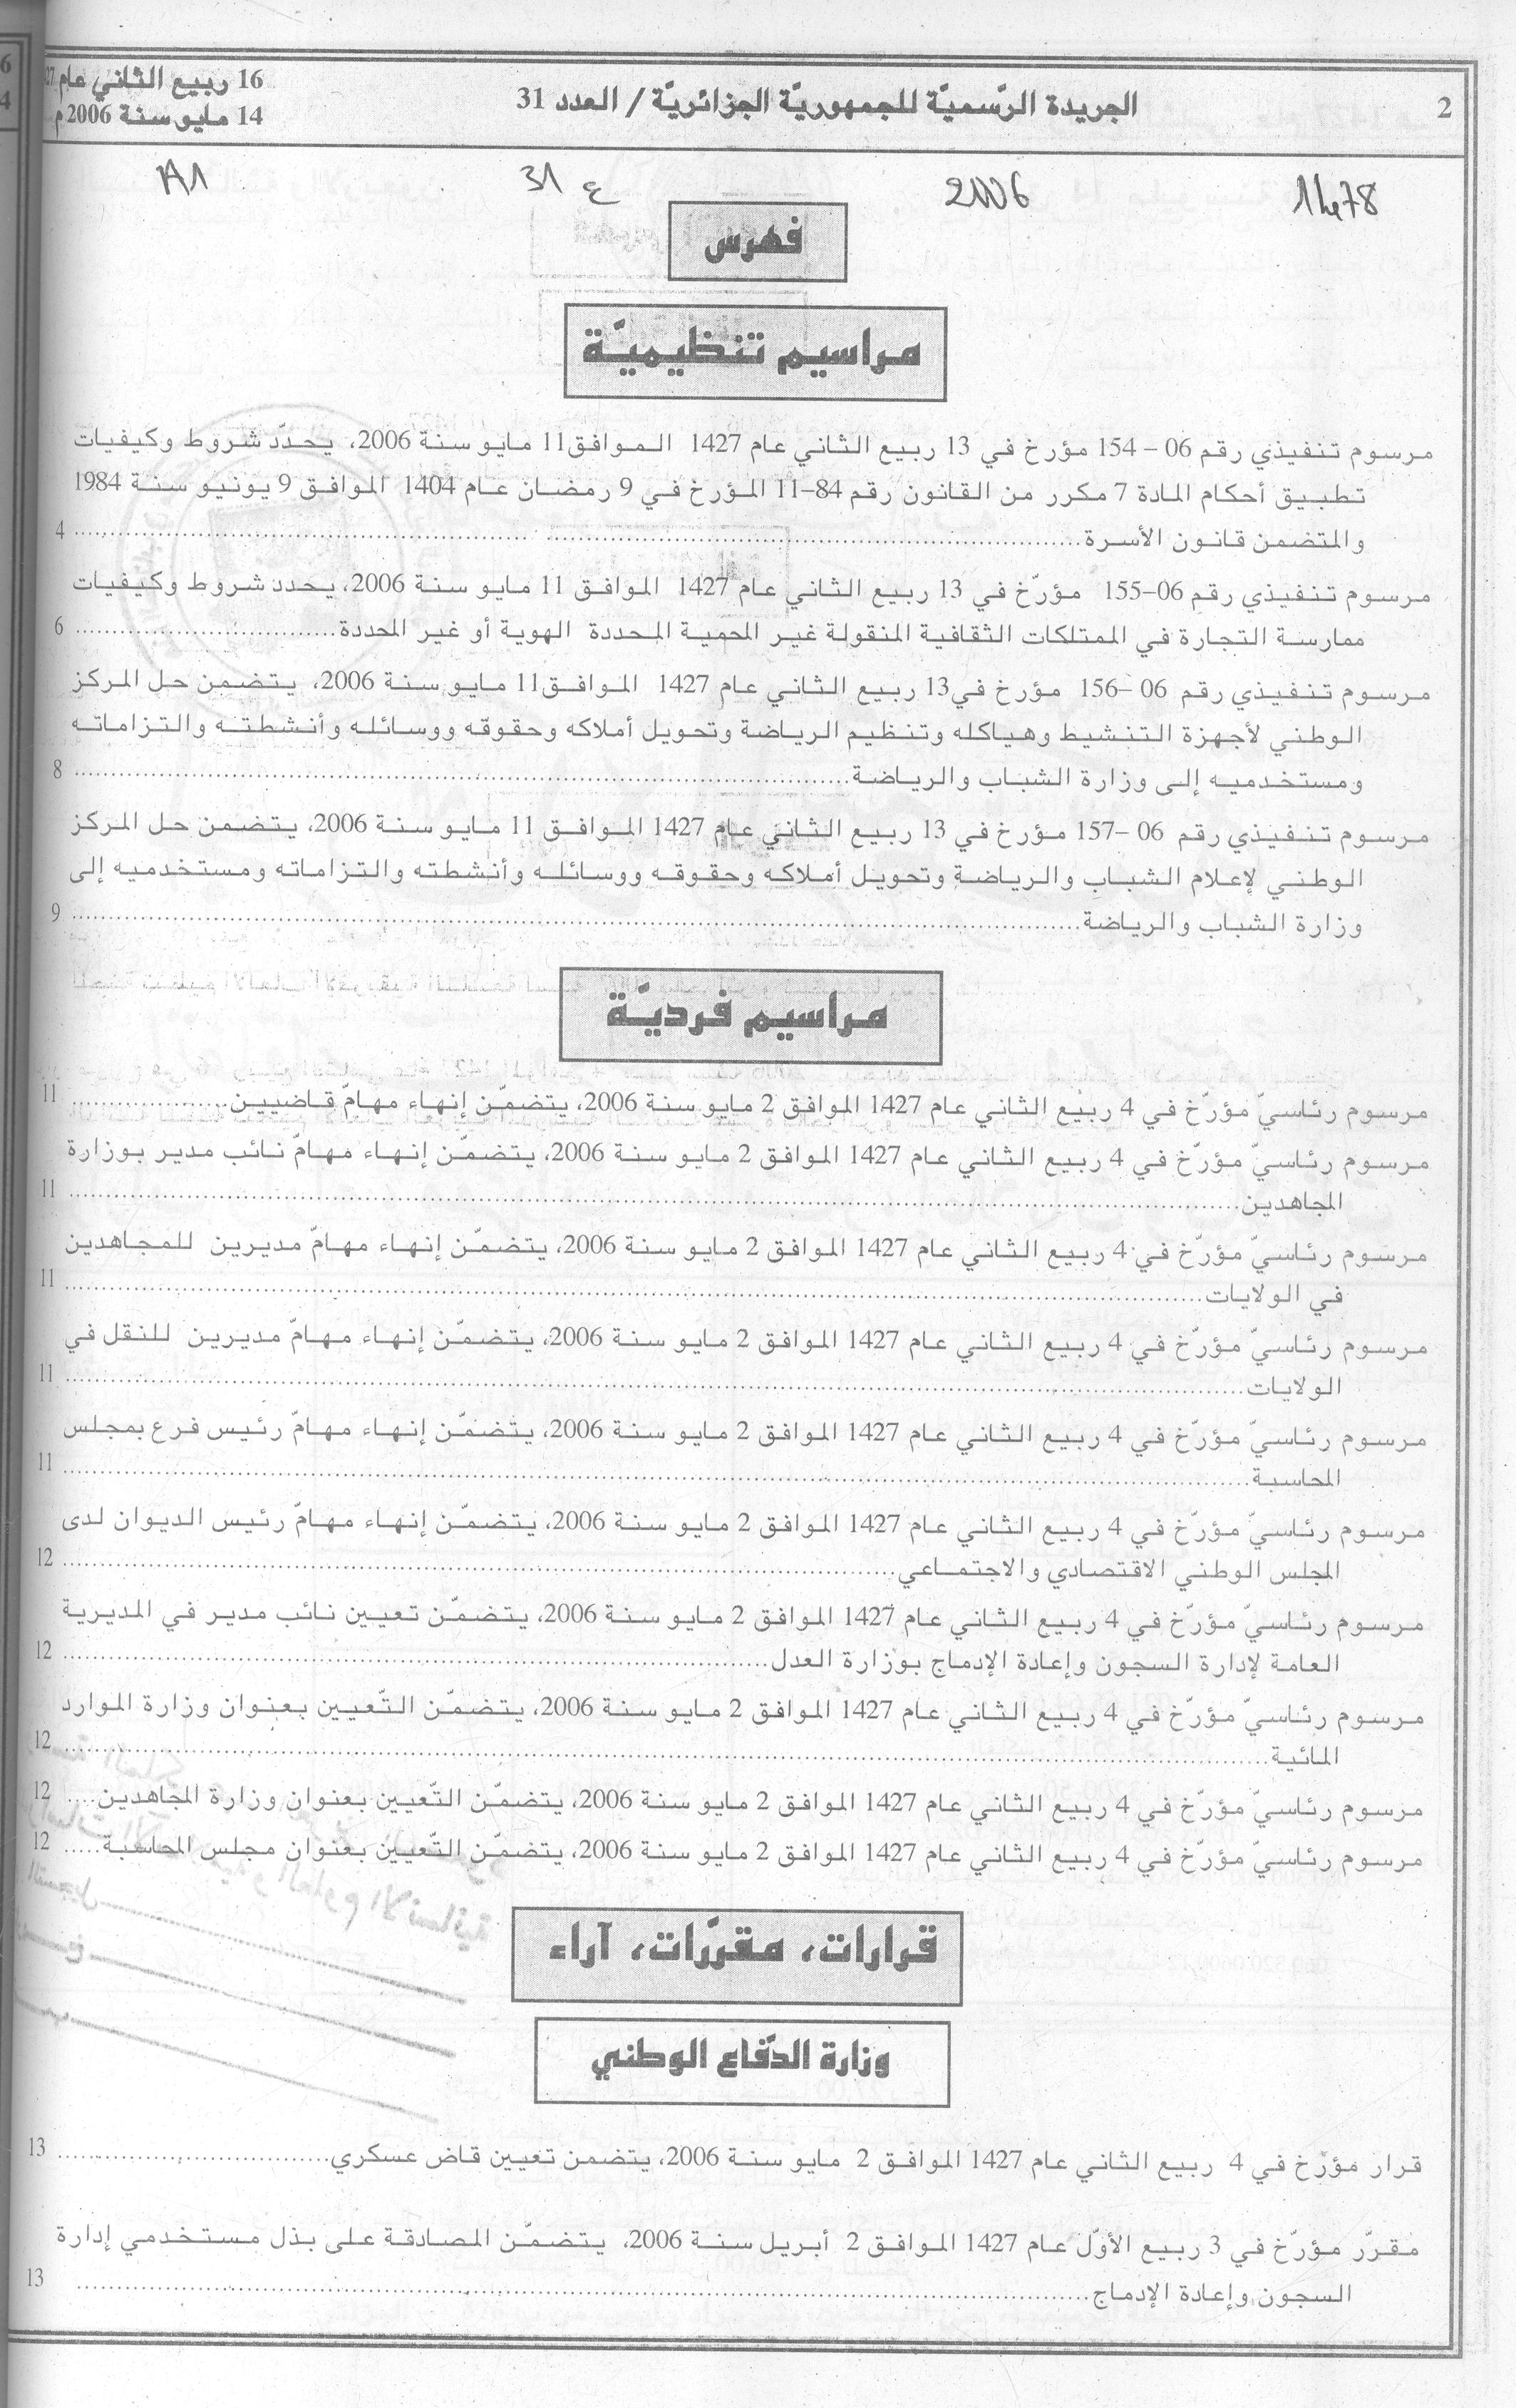 2
الجريدة الرّسميّة للجمهوريّة الجزائريّة / العدد 31
16 ربيع الثاني عام
14 مايو سنة 2006 م
2006
ع 31
فهرس
مراسيم تنظيميّة
مرسوم تنفيذي رقم 06 – 154 مؤرخ في 13 ربيع الثاني عام 1427 الموافق 11 مايو سنة 2006، يحدّد شروط وكيفيات
تطبيق أحكام المادة 7 مكرر من القانون رقم 84–11 المؤرخ في 9 رمضان عام 1404 الموافق 9 يونيو سنة 1984
والمتضمن قانون الأسرة.......... 4
مرسوم تنفيذي رقم 06–155 مؤرّخ في 13 ربيع الثاني عام 1427 الموافق 11 مايو سنة 2006، يحدد شروط وكيفيات
ممارسة التجارة في الممتلكات الثقافية المنقولة غير المحمية المحددة الهوية أو غير المحددة.......... 6
مرسوم تنفيذي رقم 06 –156 مؤرخ في 13 ربيع الثاني عام 1427 الموافق 11 مايو سنة 2006، يتضمن حل المركز
الوطني لأجهزة التنشيط وهياكله وتنظيم الرياضة وتحويل أملاكه وحقوقه ووسائله وأنشطته والتزاماته
ومستخدميه إلى وزارة الشباب والرياضة.......... 8
مرسوم تنفيذي رقم 06 –157 مؤرخ في 13 ربيع الثاني عام 1427 الموافق 11 مايو سنة 2006، يتضمن حل المركز
الوطني لإعلام الشباب والرياضة وتحويل أملاكه وحقوقه ووسائله وأنشطته والتزاماته ومستخدميه إلى
وزارة الشباب والرياضة.......... 9
مراسيم فرديّة
مرسوم رئاسيّ مؤرّخ في 4 ربيع الثاني عام 1427 الموافق 2 مايو سنة 2006، يتضمّن إنهاء مهامّ قاضيين.......... 11
مرسوم رئاسيّ مؤرّخ في 4 ربيع الثاني عام 1427 الموافق 2 مايو سنة 2006، يتضمّن إنهاء مهامّ نائب مدير بوزارة
المجاهدين.......... 11
مرسوم رئاسيّ مؤرّخ في 4 ربيع الثاني عام 1427 الموافق 2 مايو سنة 2006، يتضمّن إنهاء مهامّ مديرين للمجاهدين
في الولايات.......... 11
مرسوم رئاسيّ مؤرّخ في 4 ربيع الثاني عام 1427 الموافق 2 مايو سنة 2006، يتضمّن إنهاء مهامّ مديرين للنقل في
الولايات.......... 11
مرسوم رئاسيّ مؤرّخ في 4 ربيع الثاني عام 1427 الموافق 2 مايو سنة 2006، يتضمّن إنهاء مهامّ رئيس فرع بمجلس
المحاسبة.......... 11
مرسوم رئاسيّ مؤرّخ في 4 ربيع الثاني عام 1427 الموافق 2 مايو سنة 2006، يتضمّن إنهاء مهامّ رئيس الديوان لدى
المجلس الوطني الاقتصادي والاجتماعي.......... 12
مرسوم رئاسيّ مؤرّخ في 4 ربيع الثاني عام 1427 الموافق 2 مايو سنة 2006، يتضمّن تعيين نائب مدير في المديرية
العامة لإدارة السجون وإعادة الإدماج بوزارة العدل.......... 12
مرسوم رئاسيّ مؤرّخ في 4 ربيع الثاني عام 1427 الموافق 2 مايو سنة 2006، يتضمّن التّعيين بعنوان وزارة الموارد
المائية.......... 12
مرسوم رئاسيّ مؤرّخ في 4 ربيع الثاني عام 1427 الموافق 2 مايو سنة 2006، يتضمّن التّعيين بعنوان وزارة المجاهدين.... 12
مرسوم رئاسيّ مؤرّخ في 4 ربيع الثاني عام 1427 الموافق 2 مايو سنة 2006، يتضمّن التّعيين بعنوان مجلس المحاسبة..... 12
قرارات، مقرّرات، آراء
وزارة الدّفاع الوطني
قرار مؤرّخ في 4 ربيع الثاني عام 1427 الموافق 2 مايو سنة 2006، يتضمن تعيين قاض عسكري.......... 13
مقرّر مؤرّخ في 3 ربيع الأوّل عام 1427 الموافق 2 أبريل سنة 2006، يتضمّن المصادقة على بذل مستخدمي إدارة
السجون وإعادة الإدماج.......... 13